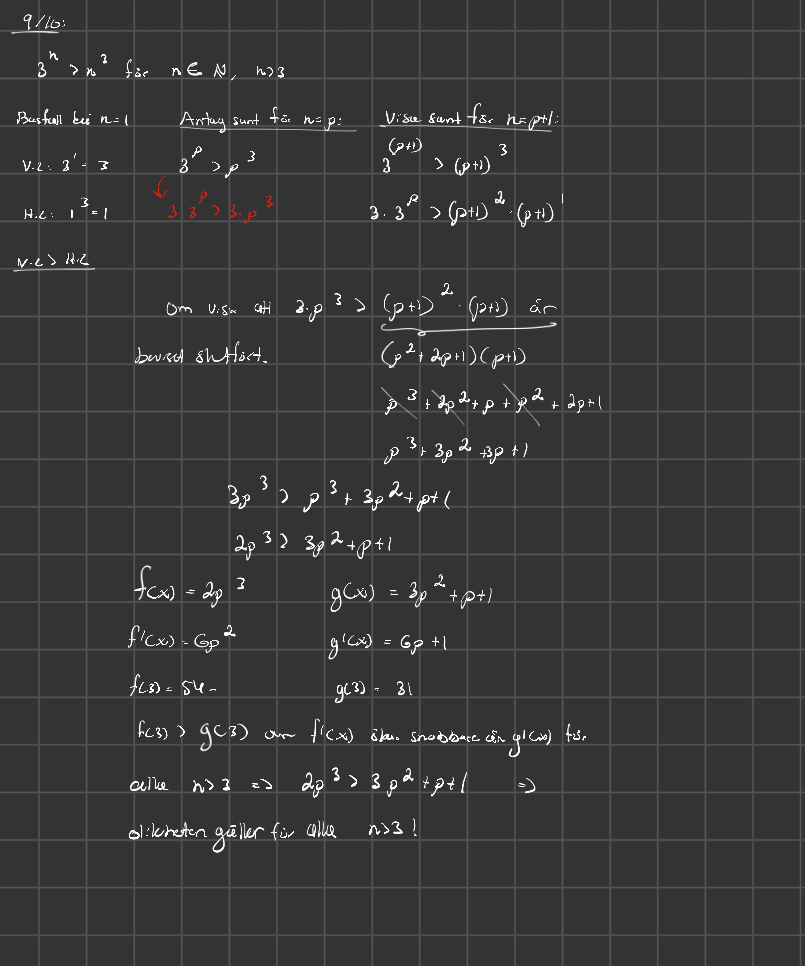 9/10:
3^n > n^3 för n ∈ N, n>3
Basfall bei n=1 Antag sant för n=p: Visa sant för n=p+1:
V.L: 3^1 = 3 3^p > p^3 3^(p+1) > (p+1)^3
H.L: 1^3 = 1 3 3^p > 3·p^3 3·3^p > (p+1)^2·(p+1)^1
V.L > H.L
Om visa att 3·p^3 > (p+1)^2·(p+1) är
beviset slutfört. (p^2+2p+1)(p+1)
p^3+2p^2+p+p^2+2p+1
p^3+3p^2+3p+1
3p^3 > p^3+3p^2+p+1
2p^3 > 3p^2+p+1
f(x) = 2p^3 g(x) = 3p^2+p+1
f'(x) = 6p^2 g'(x) = 6p+1
f(3) = 54 - g(3) = 31
f(3) > g(3) om f'(x) ökar snabbare än g'(x) för
alla n>3 => 2p^3 > 3p^2+p+1 =>
olikheten gäller för alla n>3!